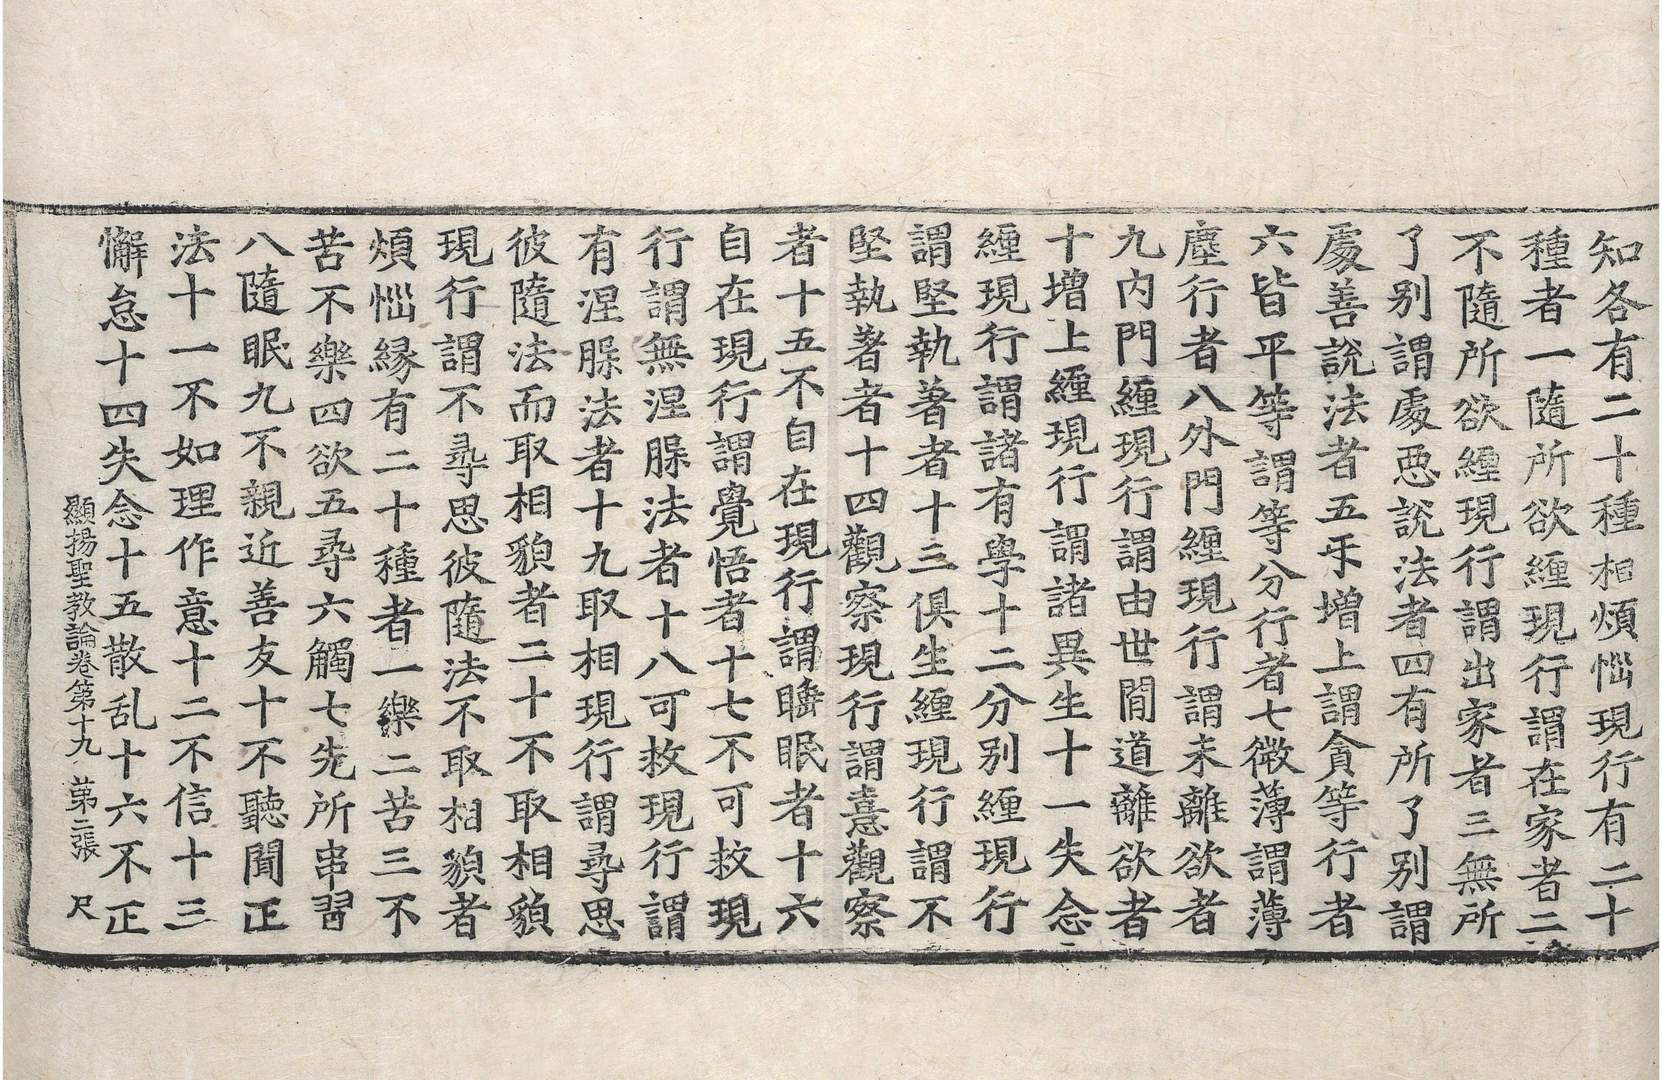 知各有二十種相煩惱現行有二十
種者一隨所欲纏現行謂在家者二
不隨所欲纏現行謂出家者三無所
了別謂處惡說法者四有所了別謂
處善說法者五㸦增上謂貪等行者
六皆平等謂等分行者七微薄謂薄
塵行者八外門纏現行謂未離欲者
九內門纏現行謂由世間道離欲者
十增上纏現行謂諸異生十一失念
纏現行謂諸有學十二分別纏現行
謂堅執著者十三俱生纏現行謂不
堅執著者十四觀察現行謂憙觀察
者十五不自在現行謂睡眠者十六
自在現行謂覺悟者十七不可救現
行謂無涅槃法者十八可救現行謂
有涅槃法者十九取相現行謂尋思
彼隨法而取相貌者二十不取相貌
現行謂不尋思彼隨法不取相貌者
煩惱緣有二十種者一樂二苦三不
苦不樂四欲五尋六觸七先所串習
八隨眠九不親近善友十不聽聞正
法十一不如理作意十二不信十三
懈怠十四失念十五散乱十六不正
顯揚聖教論卷第十九 第二張 尺